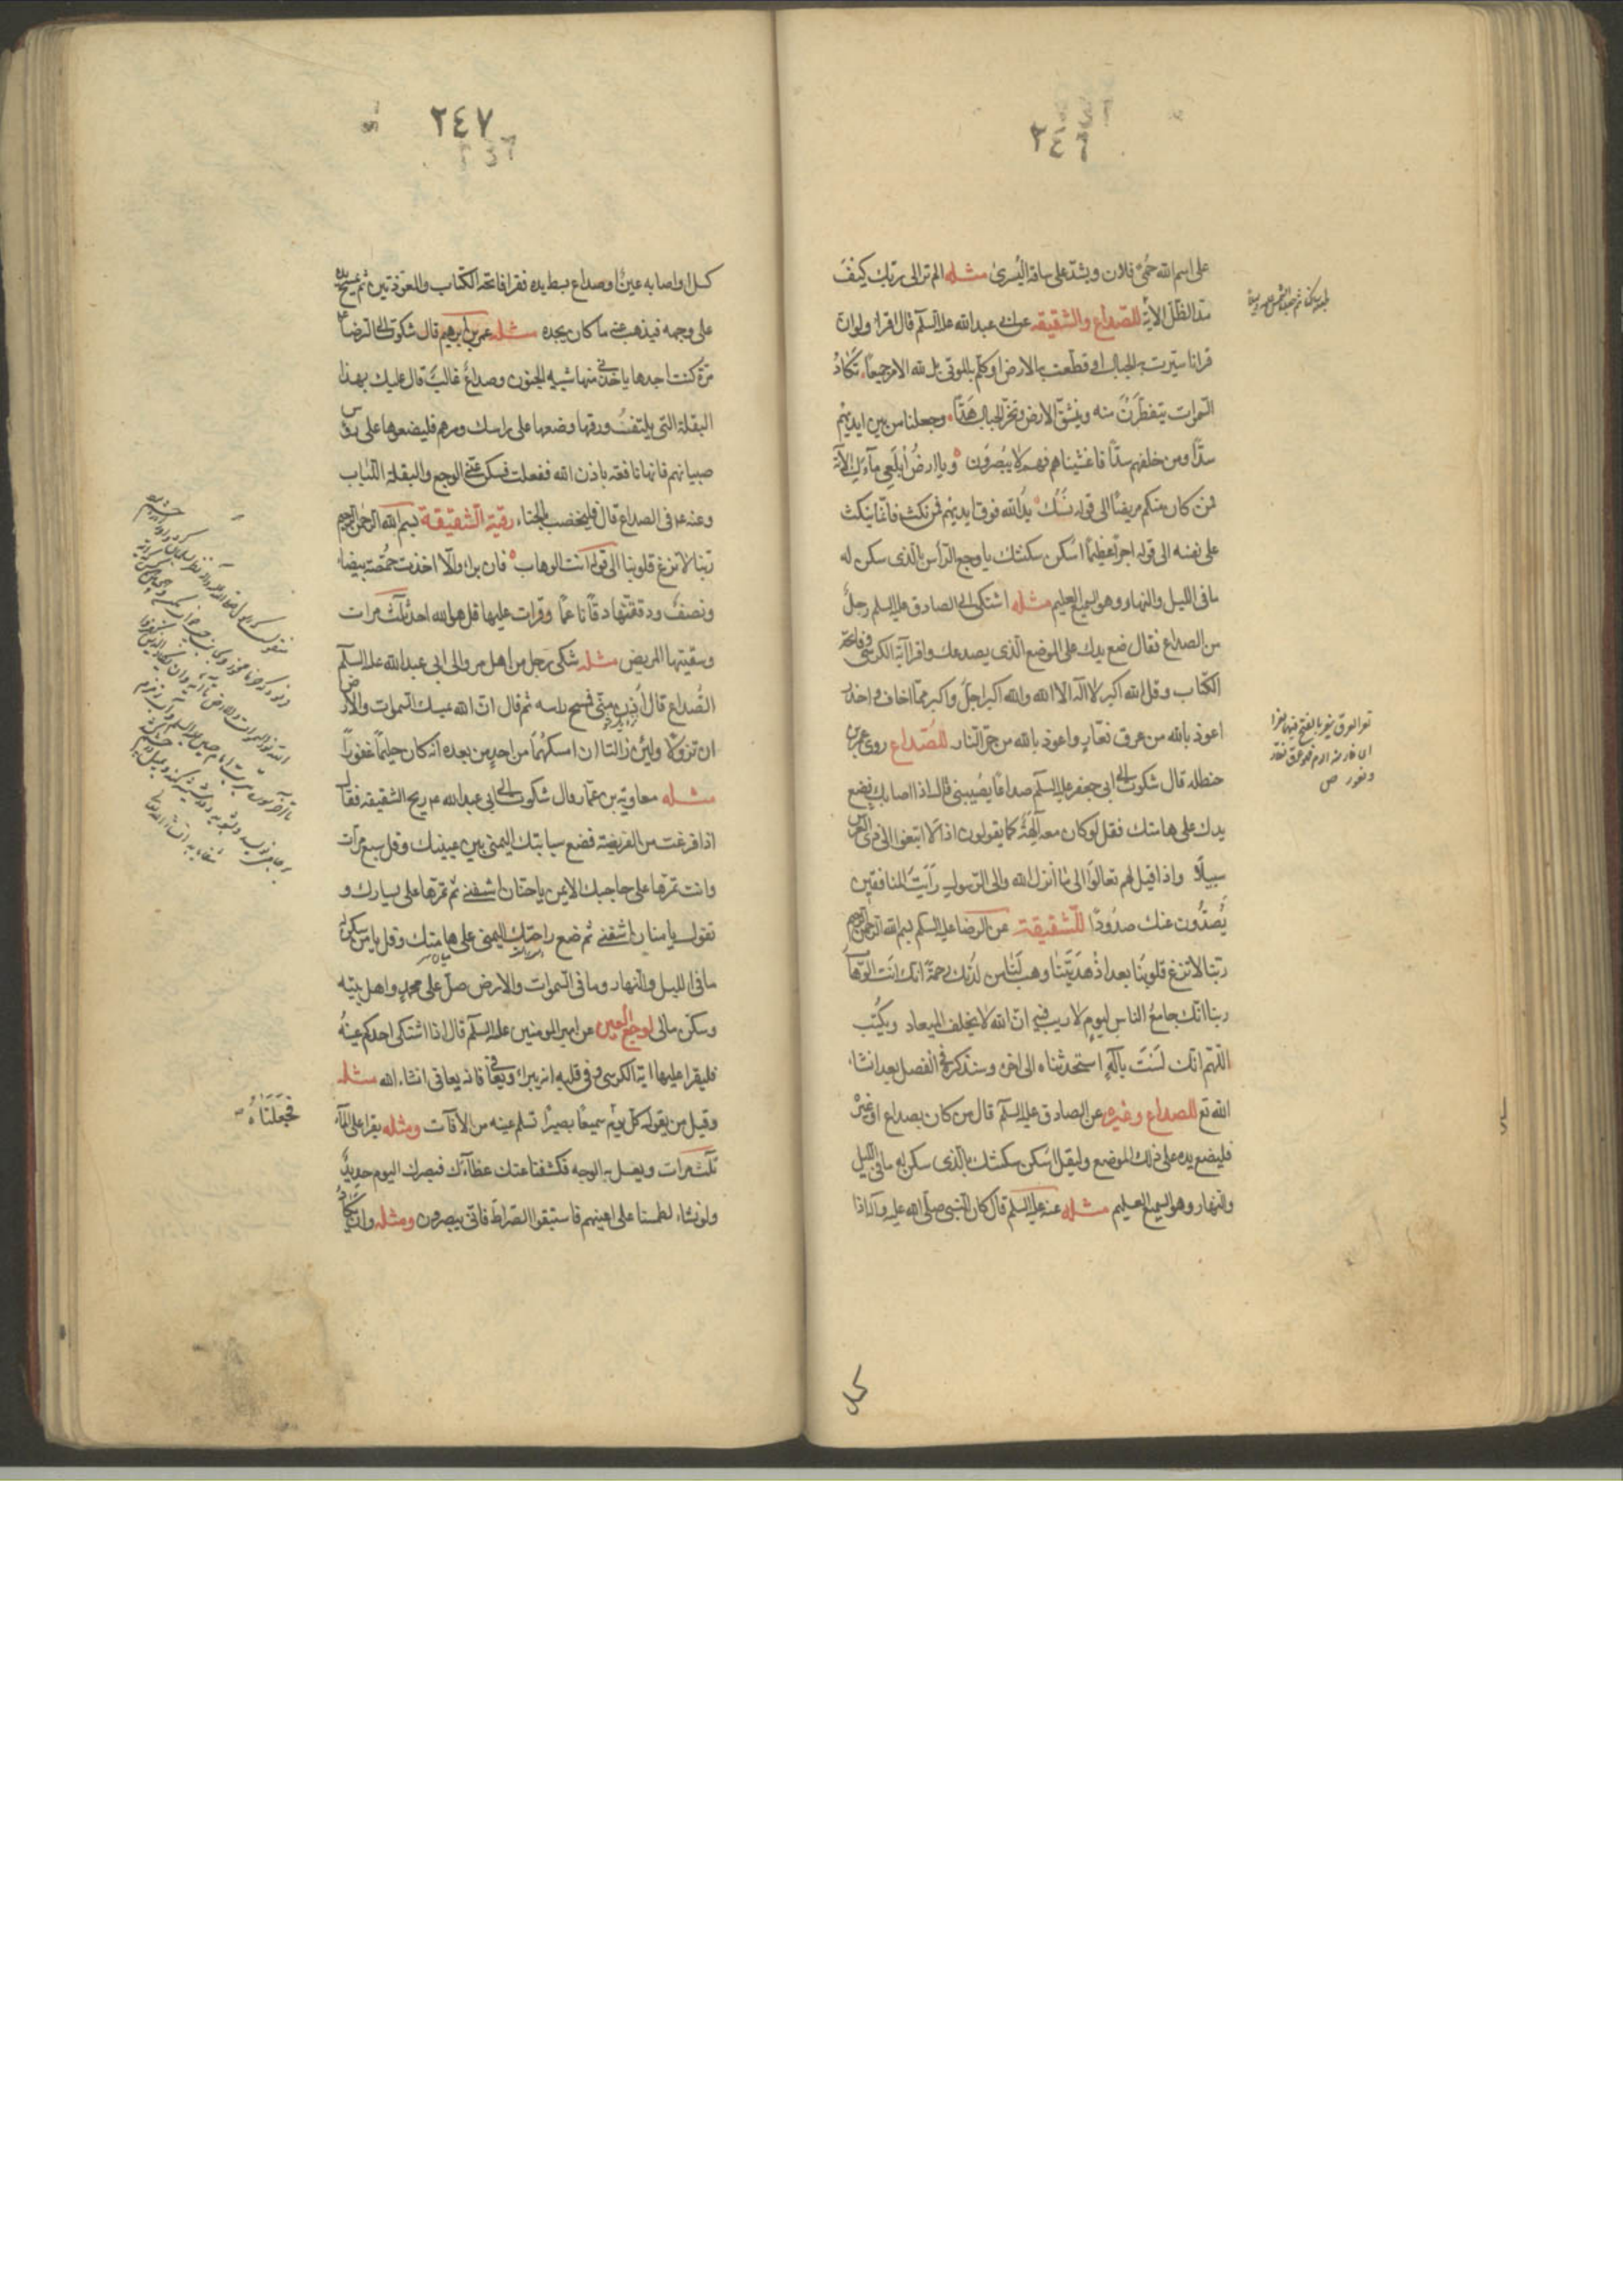 ٢٤٦
على اسم الله حمى فلان ويشد على ساقه اليسرى مثله الم تر الى ربك كيف
مد الظل الآية للصداع والشقيقه عن ابى عبد الله علم السلم قال اقرا ولو ان
قرانا سيرت به الجبال او قطعت به الارض او كلم به الموتى بل لله الامر جميعا تكاد
السموات يتفطرن منه وينشق الارض وتخر الجبال هدا وجعلنا من بين ايديهم
سدا ومن خلفهم سدا فاغشيناهم فهم لا يبصرون ويا ارض ابلعى مآءك الآية
فمن كان منكم مريضا الى قوله نسك يد الله فوق ايديهم فمن نكث فانما ينكث
على نفسه الى قوله اجرا عظيما اسكن سكنتك يا وجع الرأس بالذى سكن له
ما فى الليل والنهار وهو السميع العليم مثله اشتكى الى الصادق علم السلم رجل
من الصداع فقال ضع يدك على الموضع الذى يصدعك واقرا آية الكرسى وفاتحة
الكتاب وقل الله اكبر لا اله الا الله والله اكبر اجل واكبر مما اخاف واحذر
اعوذ بالله من عرق نعار واعوذ بالله من حر النار للصداع روى عمر بن
حنظله قال شكوت الى ابى جعفر علم السلم صداعا يصيبنى قال اذا اصابك فضع
يدك على هامتك فقل لو كان معه آلهة كما يقولون اذا لا ابتغوا الى ذى العرش
سبيلا واذا قيل لهم تعالوا الى ما انزل الله والى الرسول رايت المنافقين
يصدون عنك صدودا للشقيقة عن الرضا علم السلم بسم الله الرحمن الرحيم
ربنا لا تزغ قلوبنا بعد اذ هديتنا وهب لنا من لدنك رحمة انك انت الوهاب
ربنا انك جامع الناس ليوم لا ريب فيه ان الله لا يخلف الميعاد ويكتب
اللهم انك لست بآله استحدثناه الى اخره وسنذكره فى الفصل بعد انشاء
الله تع للصداع وغيره عن الصادق علم السلم قال من كان به صداع او غيره
فليضع يده على ذلك الموضع وليقل اسكن سكنتك بالذى سكن له ما فى الليل
والنهار وهو السميع العليم مثله عنه علم السلم قال كان النبى صلى الله عليه وآله اذا
نعر العرق ينعر بالفتح فيهما نعرا
اى فار منه الدم فهو عرق نعار
ونعور ص
٢٤٧
كسل او اصابه عين او صداع بسط يده فقرا فاتحة الكتاب والمعوذتين ثم يمسح يده
على وجهه فيذهب عنه ما كان يجده مثله عمر بن ابرهيم قال شكوت الى الرضا ع
مرة كنت اجدها ياخذنى منها شبه الجنون وصداع غالب قال عليك بهذا
البقلة التى يلتف ورقها وضعها على راسك ومرهم فليضعوها على رؤس
صبيانهم فانها نافعة باذن الله ففعلت فسكن عنى الوجع والبقلة اللبلاب
وعنه ع فى الصداع قال فليخضب بالحناء رقية الشقيقة بسم الله الرحمن الرحيم
ربنا لا تزغ قلوبنا الى قوله انت الوهاب فان برا والا اخذت حمصة بيضاء
ونصف ودققتها دقا ناعما وقرات عليها قل هو الله احد ثلث مرات
وسقيتها المريض مثله شكى رجل من اهل مرو الى ابى عبد الله علم السلم
الصداع قال ادن منى فمسح راسه ثم قال ان الله يمسك السموات والارض
ان تزولا ولئن زالتا ان امسكهما من احد من بعده انه كان حليما غفورا
مثله معاوية بن عمار قال شكوت الى ابى عبد الله ع ريح الشقيقه فقال
اذا فرغت من الفريضة فضع سبابتك اليمنى بين عينيك وقل سبع مرات
وانت تمرها على حاجبك الايمن يا حنان اشفنى ثم تمرها على يسارك و
تقول يا منان اشفنى ثم ضع راحتك اليمنى على هامتك وقل يا من سكن له
ما فى الليل والنهار وما فى السموات والارض صل على محمد واهل بيته
وسكن مابى لوجع العين عن امير المومنين علم السلم قال اذا اشتكى احدكم عينه
فليقرا عليها اية الكرسى وفى قلبه انه يبرا ويعافى فانه يعافى انشاء الله مثله
وقيل من يقول كل يوم فجعلناه سميعا بصيرا تسلم عينه من الآفات ومثله يقرا على الماء
ثلث مرات ويغسل به الوجه فكشفنا عنك غطآءك فبصرك اليوم حديد
ولو نشاء لطمسنا على اعينهم فاستبقوا الصراط فانى يبصرون ومثله وان يكاد
فجعلناه
كسل